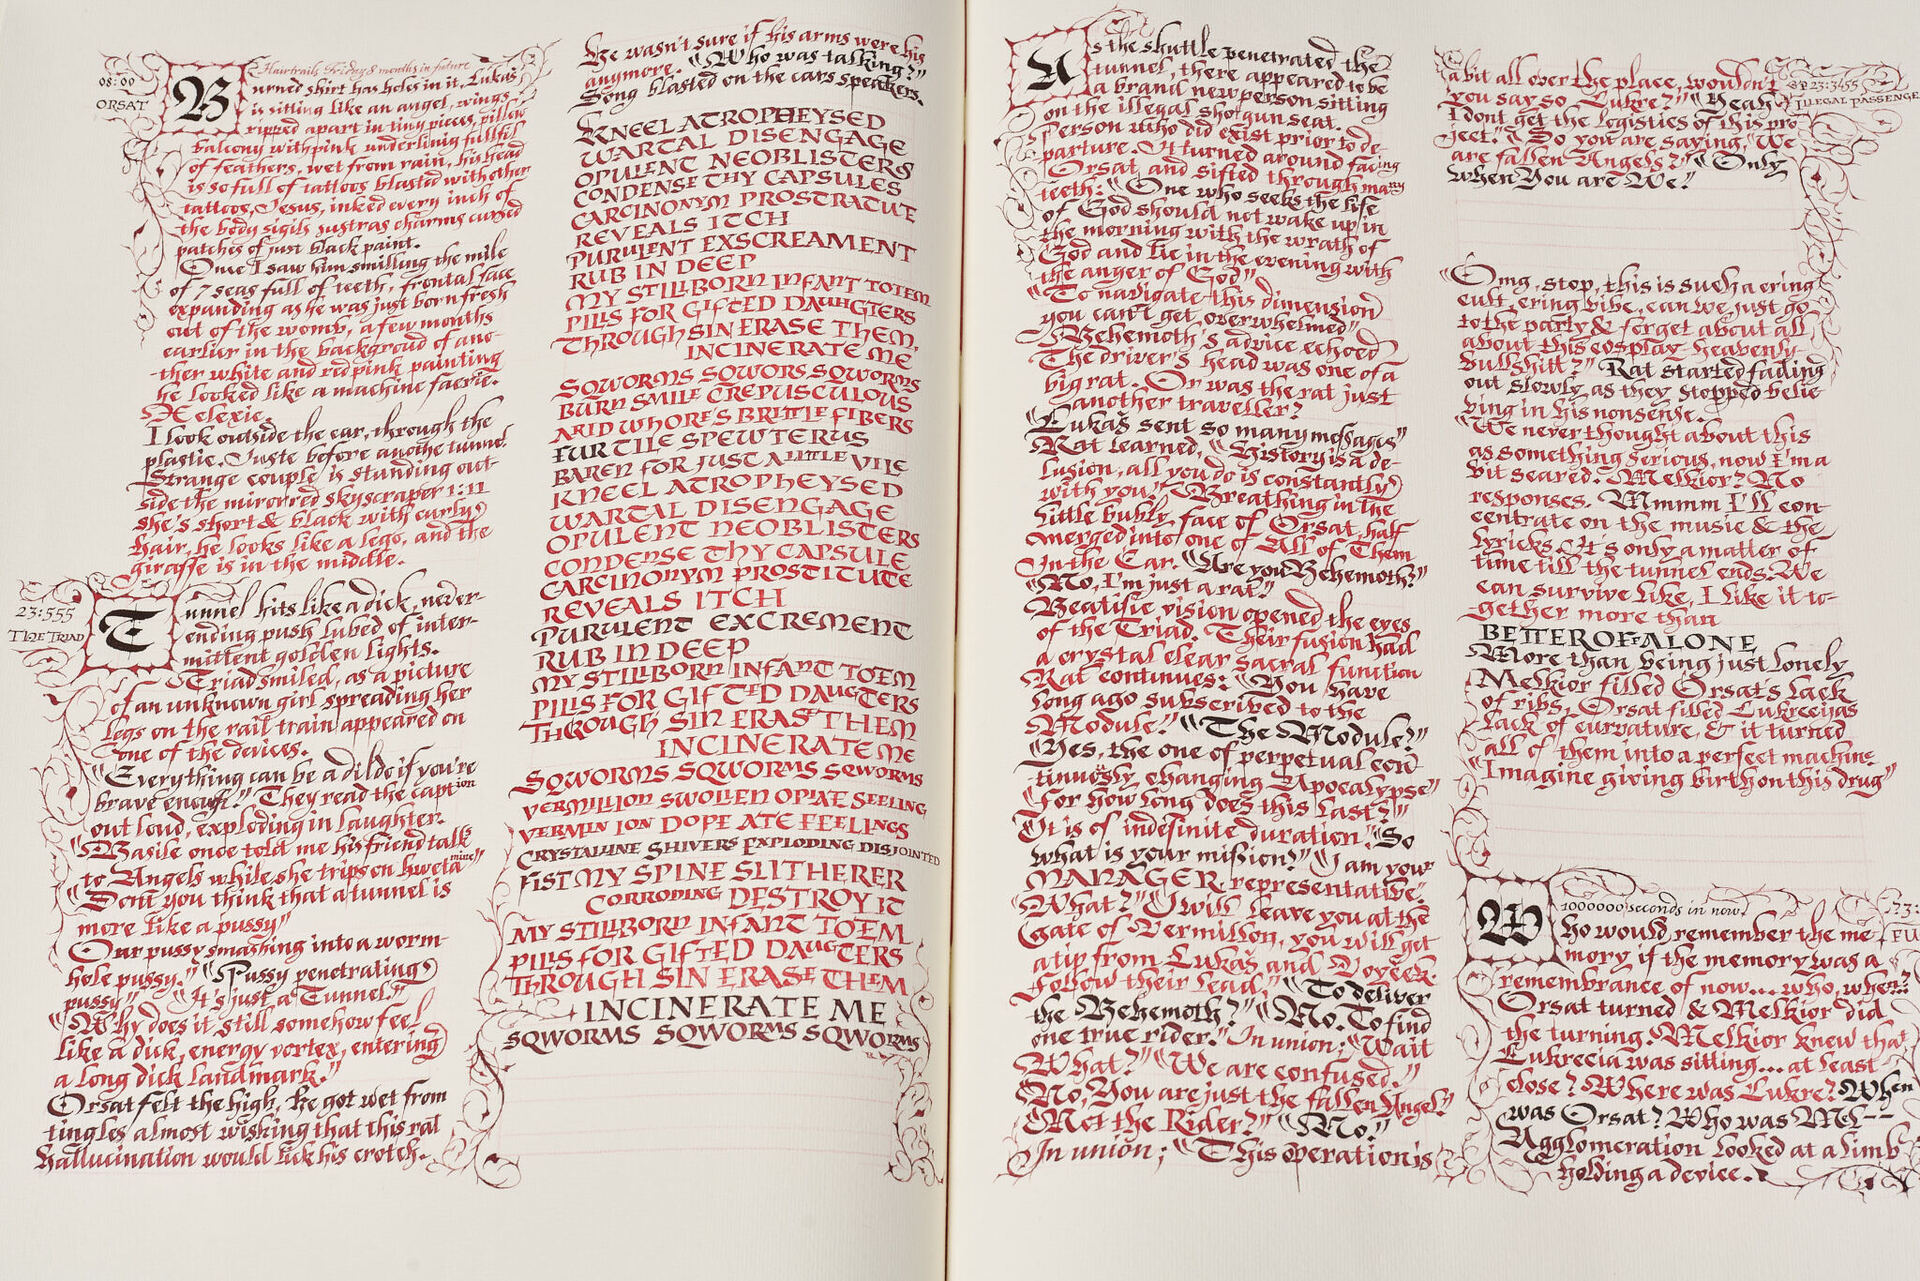 08:00
ORSAT
Hairtrails Friday 8 months in future
Burned shirt has holes in it, Lukas
is sitting like an angel, wings
ripped apart in tiny pieces, pillow
falcony with pink underlinig fullfil
of feathers, wet from rain, his head
is so full of tattoos blasted with other
tattoos, Jesus, inked every inch of
the body sigils justras charms cursed
patches of just black paint.
Once I saw him smilling the mile
of 7 seas full of teeth, frontal face
expanding as he was just born fresh
out of the womb, a few months
earlier in the backgroud of ano-
ther white and rid pink painting
he looked like a machine faerie.
elexie.
I look outside the car, through the
plastic. Juste before anothe tunnel
Strange couple is standing out-
side the mirorred skyscraper 1:11
she's short & black with curly
hair, he looks like a lego, and the
giraffe is in the middle.
23:555
THE TRIAD
Tunnel hits like a dick, never-
ending push lubed of inter-
mittent golden lights.
Triad smiled, as a picture
of an unknown girl spreading her
legs on the rail train appeared on
one of the devices.
"Everything can be a dildo if you're
brave enough!" They read the caption
out loud, exploding in laughter.
"Basile once told me his friend talk
to Angels while she trips on kwetamine"
"Dont you think that a tunnel is
more like a pussy"
Our pussy smashing into a worm-
hole pussy." "Pussy penetrating
pussy" "It's just a Tunnel"
"Why does it still somehow feel
like a dick, energy vortex, entering
a long dick landmark."
Orsat felt the high, he got wet from
tingles almost wishing that this rat
hallucination would lick his crotch.
He wasn't sure if his arms were his
anymore. "Who was talking?"
Song blasted on the cars speakers.
KNEEL ATROPHEYSED
WARTAL DISENGAGE
OPULENT NEOBLISTERS
CONDENSE THY CAPSULES
CARCINONYM PROSTRATUE
REVEALS ITCH
PURULENT EXSCREAMENT
RUB IN DEEP
MY STILLBORN INFANT TOTEM
PILLS FOR GIFTED DAUHGTERS
THROUGH SIN ERASE THEM,
INCINERATE ME
SQWORMS SQWORS SQWORMS
BURN SMILE CREPUSCULOUS
ARID WHORE'S BRITTLE FIBERS
FUR TILE SPEW TERUS
BAREN FOR JUST A LITTLE VILE
KNEEL ATROPHEYSED
WARTAL DISENGAGE
OPULENT NEOBLISTERS
CONDENSE THY CAPSULE
CARCINONYM PROSTITUTE
REVEALS ITCH
PURULENT EXCREMENT
RUB IN DEEP
MY STILLBORN INFANT TOEM
PILLS FOR GIFTED DAUGTERS
THROUGH SIN ERASE THEM
INCINERATE ME
SQWORMS SQWORMS SQWORMS
VERMILLION SWOLLEN OPIATE SEELING
VERMIN ION DOPE ATE FEELINGS
CRYSTALINE SHIVERS EXPLODING DISJOINTED
FIST MY SPINE SLITHERER
CORRODING DESTROY IT
MY STILLBORN INFANT TOEM
PILLS FOR GIFTED DAUGTERS
THROUGH SIN ERASE THEM
INCINERATE ME
SQWORMS SQWORMS SQWORMS
As the shuttle penetrated the
tunnel, there appeared to be
a brand new person sitting
on the illegal shotgun seat.
Person who did exist prior to de-
parture. It turned around facing
Orsat, and sifted through many
teeth: "One who seeks the life
of God should not wake up in
the morning with the wrath of
God and lie in the evening with
the anger of God"
"To navigate this dimension
you can't get overwhelmed"
Behemoth's advice echoed
The driver's head was one of a
big rat. Or was the rat just
another traveller?
"Lukas sent so many messages"
Rat learned, "History is a de-
lusion, all you do is constantly
with you." Breathing in the
little bubly face of Orsat, half
merged into one of All of Them
In the Car. "Are you Behemoth?"
"No, I'm just a rat."
Beatific vision opened the eyes
of the Triad. Their fusion had
a crystal clear sacral function
Rat continues: "You have
long ago subscribed to the
Module." "The Module?"
"Yes, the one of perpetual con-
tinuosly changing Apocalypse"
"For how long does this last?"
"It is of indefinite duration." "So
what is your mission?" "I am your
MANAGER representative."
"What?" "I will leave you at the
Gate of Vermilion, you will get
a tip from Lukas and Voyeek.
Follow their lead." "To deliver
the Behemoth?" "No. To find
one true rider." In union; "Wait
What?" "We are confused."
"No, You are just the fallen Angel"
"Not the Rider?" "No."
In union; "This operation is
23:3455
ILLEGAL PASSENGE
a bit all over the place, wouldn't
you say so Lukre?" "Yeah
I dont get the logistics of this pro
ject." "So you are saying, We
are fallen Angels?" "Only
when You are We!"
"Omg, stop, this is such a cring
cult cring vibe, can we just go
to the party & forget about all
about this cosplay heavenly
bullshitt?" Rat started fading
out slowly, as they stopped belie
ving in his nonsense.
"We never thought about this
as something serious, now I'm a
bit scared. Melkior? No
responses. Mmmm I'll con-
centrate on the music & the
lyricks. It's only a matter of
time till the tunnel ends. We
can survive like, I like it to-
gether more than
BETTER OFF ALONE
More than being just lonely
Melkior filled Orsat's lack
of ribs, Orsat filled Lukreeijas
lack of curvature, & it turned
all of them into a perfect machine
"Imagine giving birth on this drug"
1000000 seconds in now.
Who would remember the me
mory if the memory was a
remembrance of now... who, when?
Orsat turned & Melkior did
the turning. Melkior knew that
Lukrecia was sitting... at least
close? Where was Lukre? When
was Orsat? Who was Mel--
Agglomeration looked at a limb
holding a device.